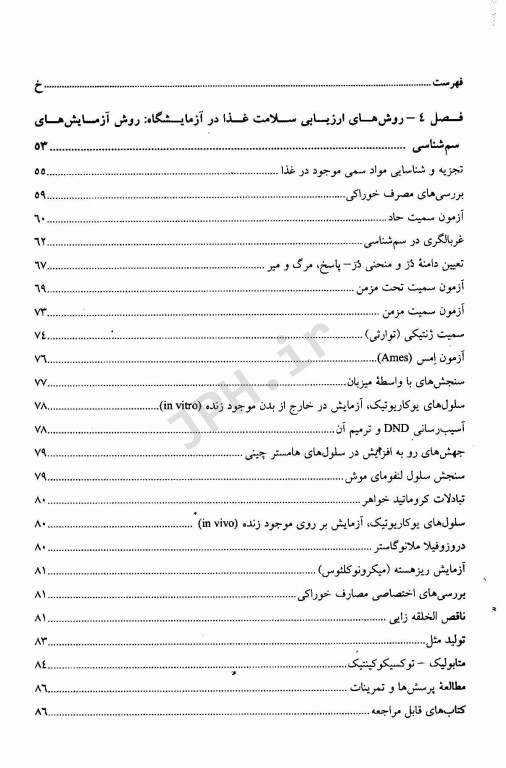 فهرست ........ خ
فصل ٤ – روش‌های ارزیابی سلامت غذا در آزمایشگاه: روش آزمایش‌های
سم‌شناسی ........ ٥٣
تجزیه و شناسایی مواد سمی موجود در غذا ........ ٥٥
بررسی‌های مصرف خوراکی ........ ٥٩
آزمون سمیت حاد ........ ٦٠
غربالگری در سم‌شناسی ........ ٦٢
تعیین دامنهٔ دُز و منحنی دُز – پاسخ، مرگ و میر ........ ٦٧
آزمون سمیت تحت مزمن ........ ٦٩
آزمون سمیت مزمن ........ ٧٣
سمیت ژنتیکی (توارثی) ........ ٧٤
آزمون اِمس (Ames) ........ ٧٦
سنجش‌های با واسطهٔ میزبان ........ ٧٧
سلول‌های یوکاریوتیک، آزمایش در خارج از بدن موجود زنده (in vitro) ........ ٧٨
آسیب‌رسانی DND و ترمیم آن ........ ٧٨
جهش‌های رو به افزایش در سلول‌های هامستر چینی ........ ٧٩
سنجش سلول لنفومای موش ........ ٧٩
تبادلات کروماتید خواهر ........ ٨٠
سلول‌های یوکاریوتیک، آزمایش بر روی موجود زنده (in vivo) ........ ٨٠
دروزوفیلا ملانوگاستر ........ ٨٠
آزمایش ریزهسته (میکرونوکلئوس) ........ ٨١
بررسی‌های اختصاصی مصارف خوراکی ........ ٨١
ناقص الخلقه زایی ........ ٨١
تولید مثل ........ ٨٣
متابولیک – توکسیکوکینتیک ........ ٨٤
مطالعهٔ پرسش‌ها و تمرینات ........ ٨٦
کتاب‌های قابل مراجعه ........ ٨٦
JPH.ir